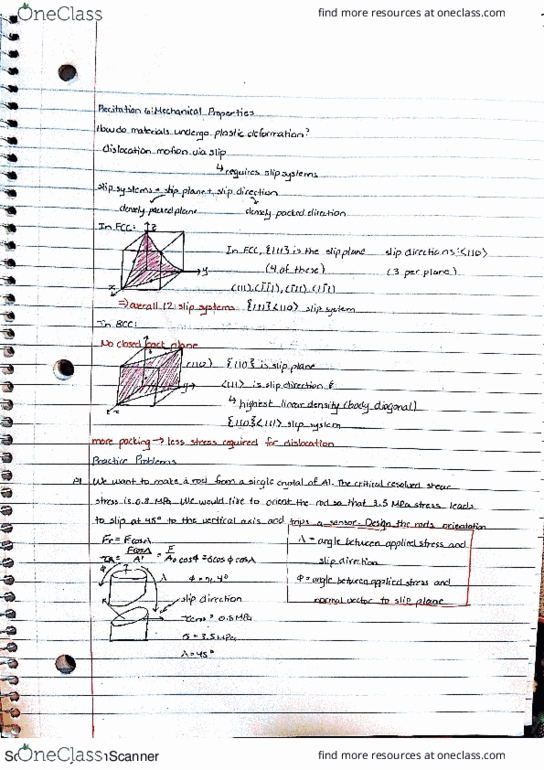 OneClass
find more resources at oneclass.com
Recitation 6: Mechanical Properties
How do materials undergo plastic deformation?
dislocation motion via slip
↳ requires slip systems
slip systems = slip plane + slip direction
densely packed plane densely packed direction
In FCC:
z
In FCC, {111} is the slip plane slip directions: <110>
(4 of these) (3 per plane)
y
x
⇒ overall 12 slip systems {111}<110> slip system
In BCC:
No closed pact plane
(110) {110} is slip plane
<111> is slip direction
↳ highest linear density (body diagonal)
{110}<111> slip system
more packing → less stress required for dislocation
Practice Problems
#1 We want to make a rod from a single crystal of Al. The critical resolved shear
stress is 0.8 MPa. We would like to orient the rod so that 3.5 MPa stress leads
to slip at 45° to the vertical axis and trips a sensor. Design the rods orientation
Fr = Fcosλ
λ = angle between applied stress and
slip direction
Φ = angle between applied stress and
normal vector to slip plane
λ
slip direction
σ = 3.5 MPa
λ = 45°
Scanner
OneClass
find more resources at oneclass.com